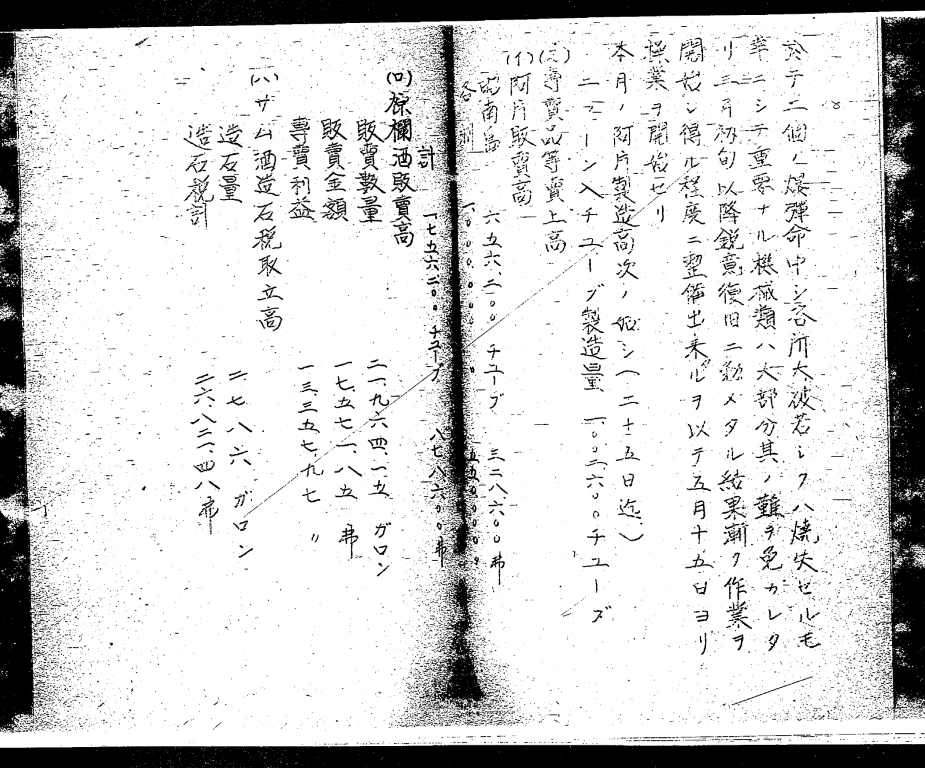 於テ二個ノ爆彈命中シ各所大破若シクハ燒失セルモ
幸ニシテ重要ナル機械類ハ大部分其ノ難ヲ免カレタ
リ三月初旬以降鋭意復旧ニ勤メタル結果漸ク作業ヲ
開始シ得ル程度ニ整備出来ルヲ以テ五月十五日ヨリ
操業ヲ開始セリ
本月ノ阿片製造高次ノ如シ(二十五日迄)
二フーン入チューブ製造量 一、〇〇二、六〇〇チューブ
(三)專賣品等賣上高
(イ)阿片販賣高
昭南島 六五六、二〇〇チューブ 三二八、六〇〇弗
各州
計 一、七五六、二〇〇チューブ 八七八、六〇〇弗
(ロ)椋欄酒販賣高
販賣數量 二一、九六四、一五 ガロン
販賣金額 一七、五七一、八五 弗
專賣利益 一三、三五七、九七 〃
(ハ)サムム酒造石税取立高
造石量 二七八六 ガロン
造石税計 二六、八三一、四八弗